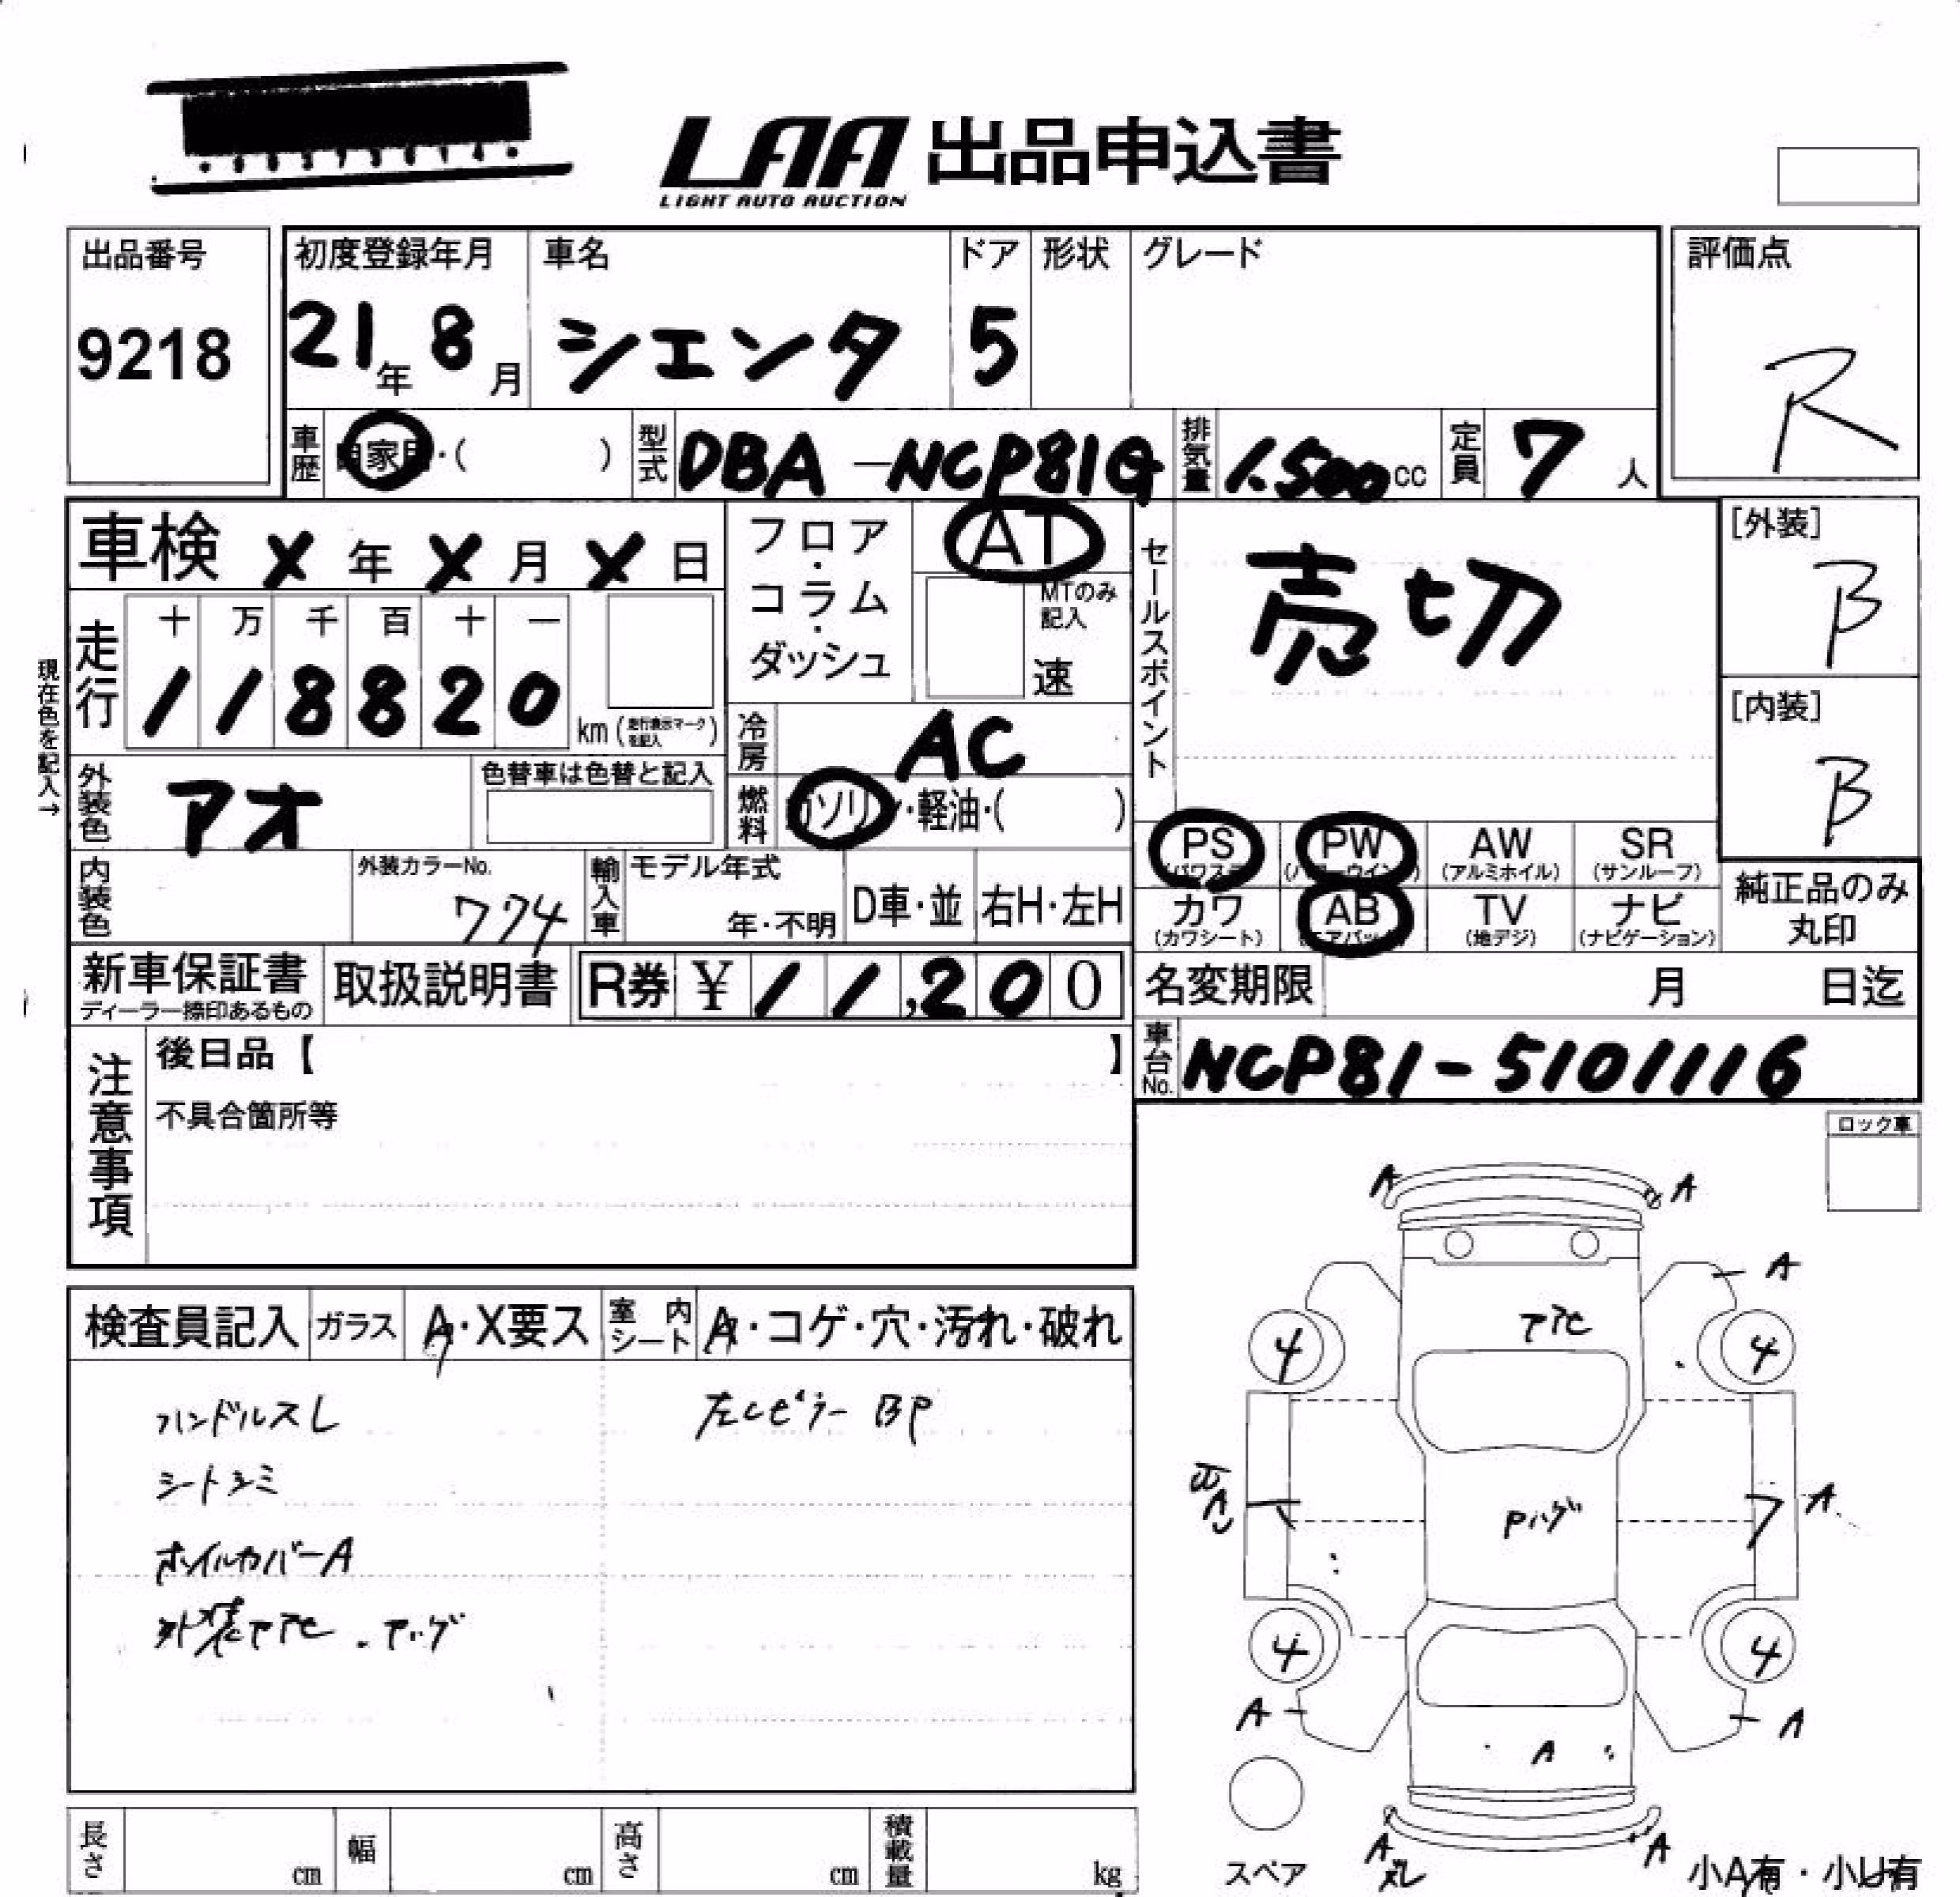 LAA 出品申込書
LIGHT AUTO AUCTION
出品番号
9218
初度登録年月
21年 8月
車名
シエンタ
ドア
5
形状
グレード
評価点
R
車歴 自家用・( )
型式 DBA-NCP81G
排気量 1.500cc
定員 7人
車検 X年 X月 X日
フロア・コラム・ダッシュ
AT
MTのみ記入
速
セールスポイント
売切
[外装]
B
[内装]
B
現在色を記入→
走行
十 万 千 百 十 一
1 1 8 8 2 0 km (走行表示マークを記入)
冷房 AC
外装色 アオ
色替車は色替と記入
燃料 ガソリン・軽油・( )
PS (パワステ)
PW (パワーウインド)
AW (アルミホイル)
SR (サンルーフ)
カワ (カワシート)
AB (エアバック)
TV (地デジ)
ナビ (ナビゲーション)
純正品のみ丸印
内装色
外装カラーNo.
774
輸入車
モデル年式
年・不明
D車・並
右H・左H
新車保証書
ディーラー捺印あるもの
取扱説明書
R券 ¥11,200
名変期限 月 日迄
車台No. NCP81-5101116
注意事項
後日品【 】
不具合箇所等
ロック車
検査員記入
ガラス A・X要ス
室内シート A・コゲ・穴・汚れ・破れ
ハンドルスレ
シートシミ
ホイルカバーA
左Cピラー BP
A A
A
4 4
A
4 4
A A
A
A A
スペア
小A有・小U有
長さ cm
幅 cm
高さ cm
積載量 kg